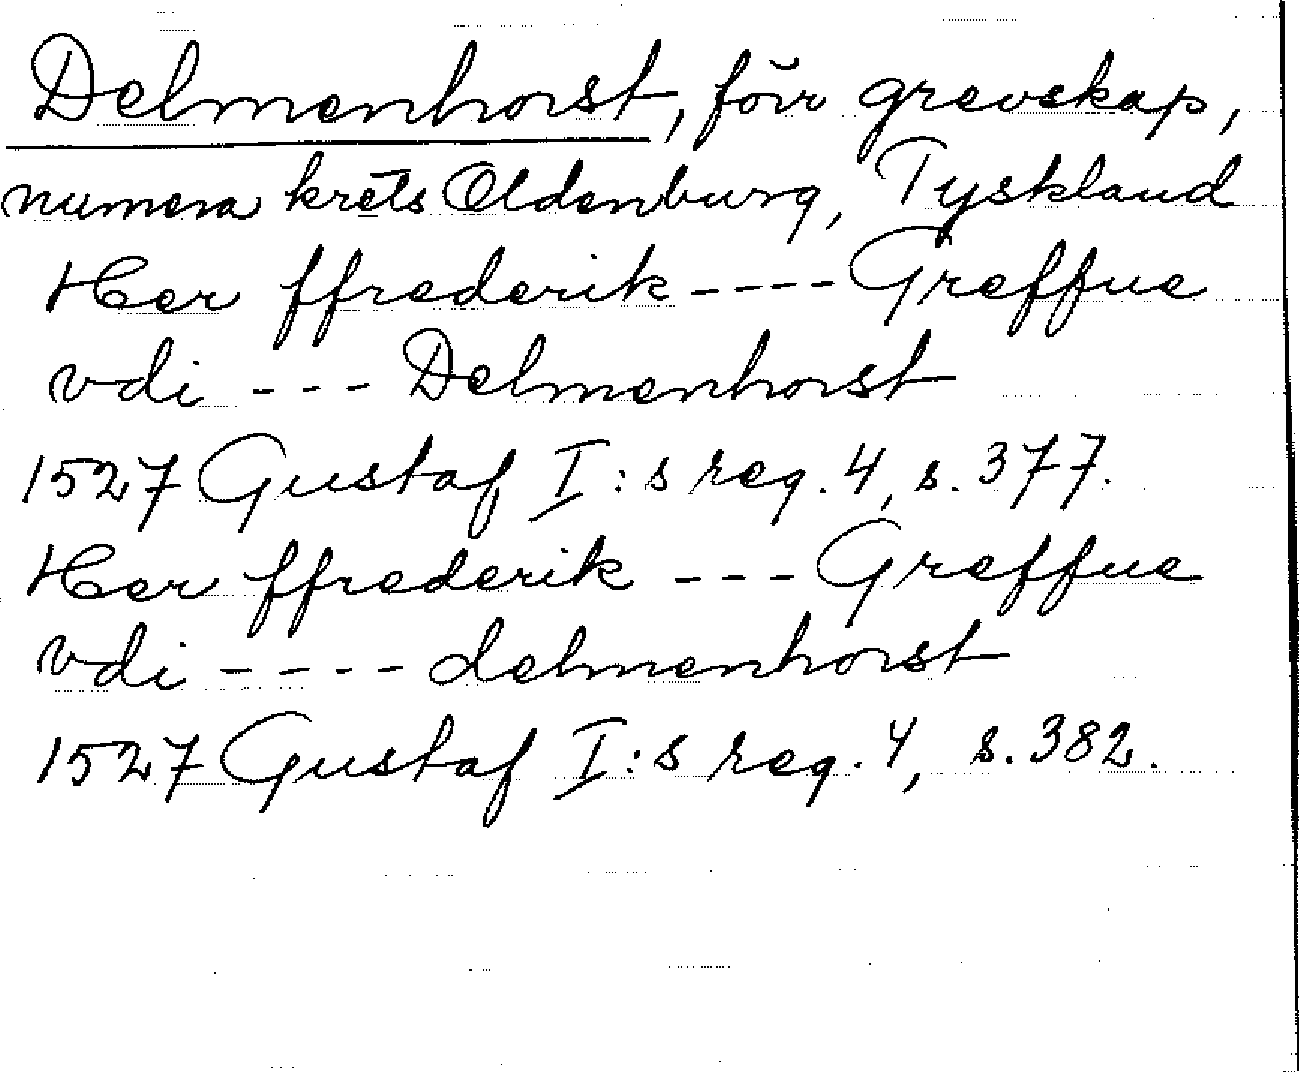 Delmenhorst, förr grevskap,
numera krets Oldenburg, Tyskland
Her ffrederik ---- Greffue
vdi --- Delmenhorst
1527 Gustaf I:s reg. 4, s. 377.
Her ffrederik --- Greffue
vdi ---- delmenhorst
1527 Gustaf I:s reg. 4, s. 382.